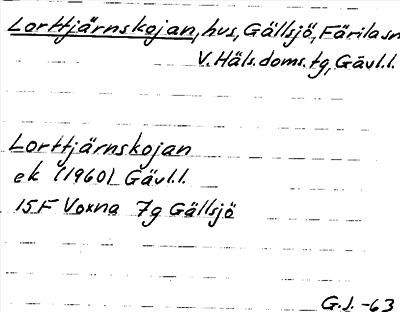 Lorttjärnskojan, hus, Gällsjö, Färila sn
V. Häls. doms. tg, Gävl.l.
Lorttjärnskojan
ek (1960) Gävl.l.
15F Voxna 7g Gällsjö
G.J. -63